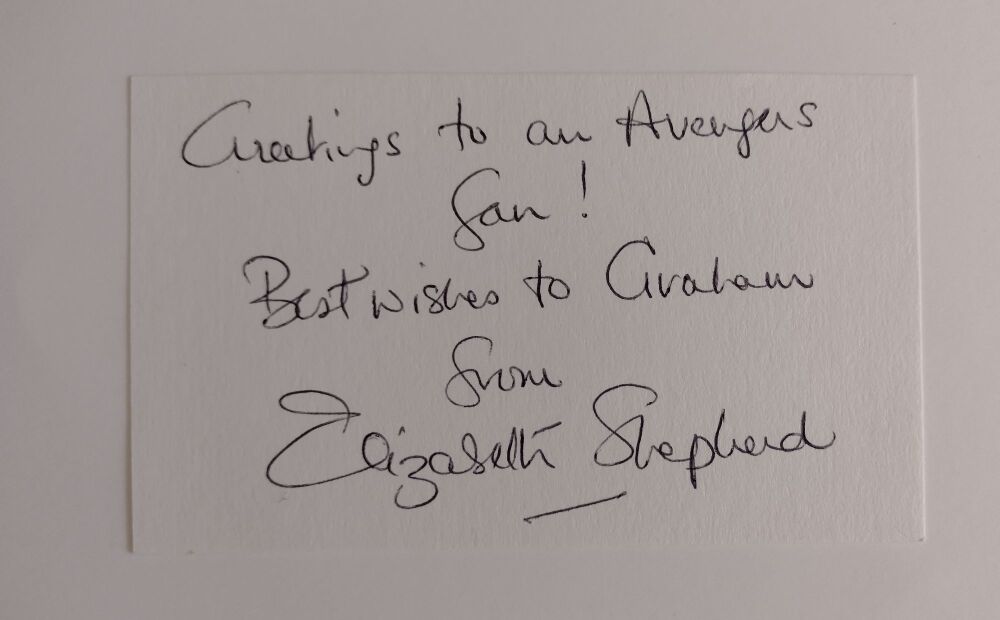 Greetings to an Avengers
fan!
Best wishes to Graham
from
Elizabeth Shepherd